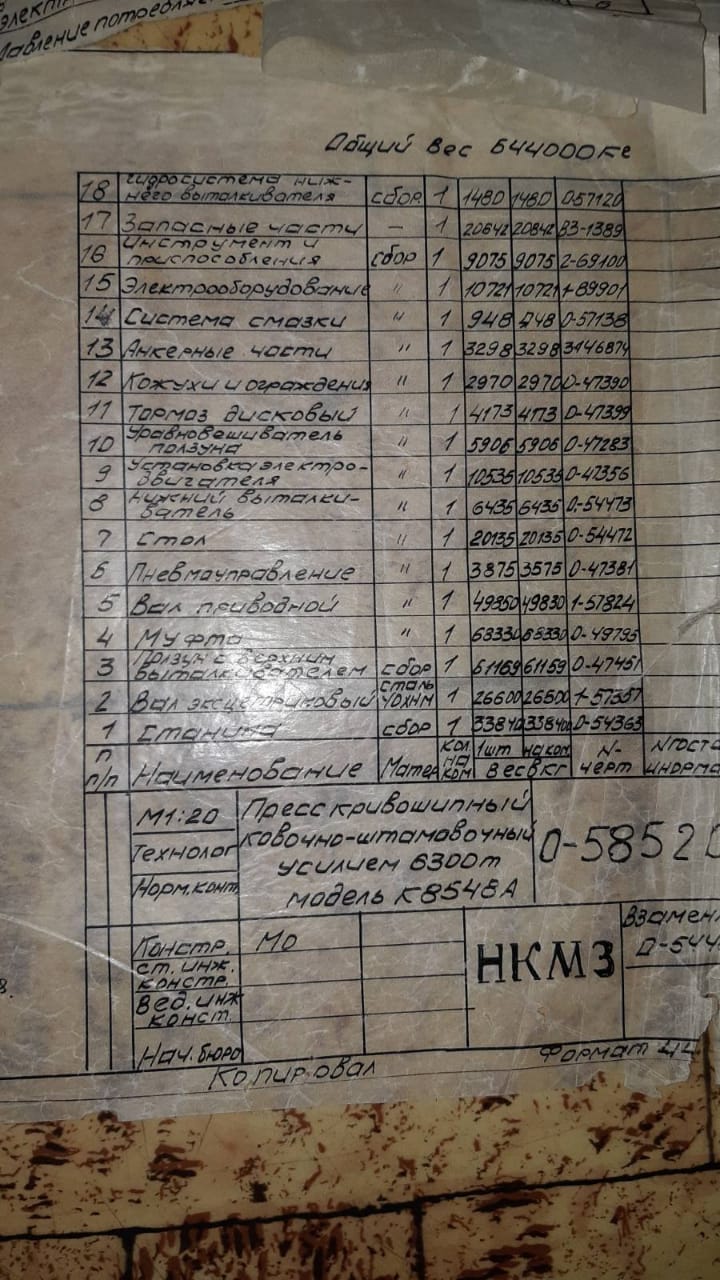 Давление потребля
Общий вес 644000кг
18 Гидросистема нижнего выталкивателя сбор. 1 1480 1480 0-57120
17 Запасные части — 1 20842 20842 ВЗ-1389
16 Инструмент и приспособления сбор 1 9075 9075 2-69100
15 Электрооборудование " 1 10721 10721 1-89901
14 Система смазки " 1 948 948 0-57138
13 Анкерные части " 1 3298 3298 3146874
12 Кожухи и ограждения " 1 2970 2970 0-47390
11 Тормоз дисковый " 1 4173 4173 0-47399
10 Уравновешиватель ползуна " 1 5906 5906 0-47283
9 Установка электродвигателя " 1 10535 10535 0-47356
8 Нижний выталкиватель " 1 6435 6435 0-54473
7 Стол " 1 20135 20135 0-54472
6 Пневмоуправление " 1 3875 3575 0-47381
5 Вал приводной " 1 49830 1-57824
4 Муфта " 1 0-49795
3 Ползун с верхним выталкивателем сбор 1 61169 61159 0-47451
2 Вал эксцетриковый сталь 40ХНМ 1 26600 26500 1-57357
1 Станина сбор 1 338400 338400 0-54363
п п/п Наименование Матер кол. на ком 1шт на ком Вес в кг N- черт NГОСТа
М1:20
Технолог
Норм.конт
Пресс кривошипный
ковочно-штамовочный
усилием 6300т
модель К8548А
0-5852
Констр. Мо
ст. инж. констр.
Вед. инж конст.
Нач. бюро
НКМЗ
Взамен
0-544
Копировал
Формат 44